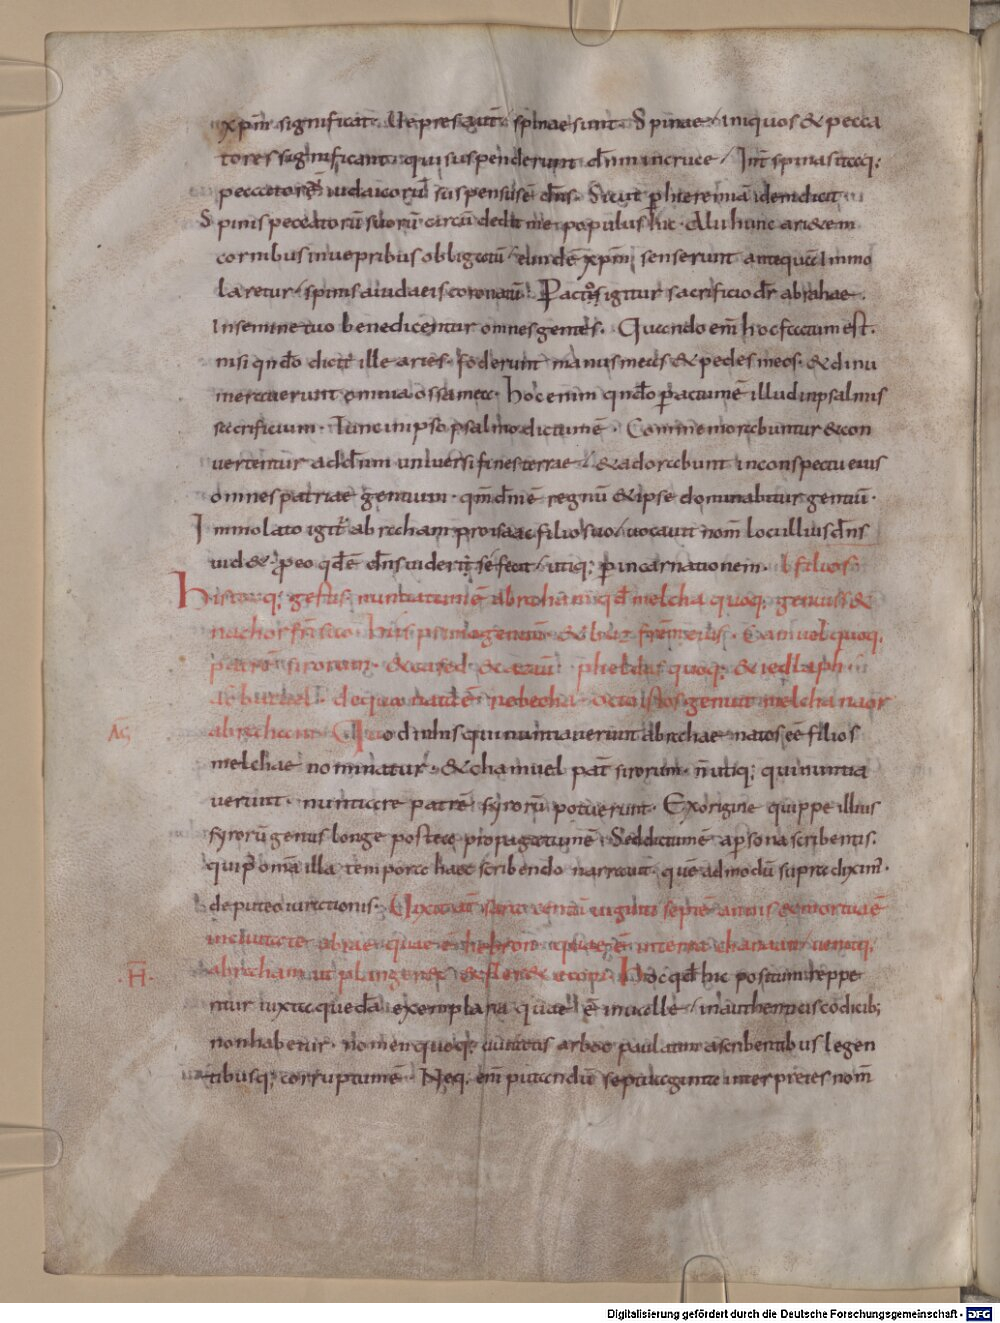 xp̄m significat. Uepres aut̄ spinae sunt. Spinae iniquos & pecca
tores significant qui suspenderunt dn̄m in cruce / Int̄ spinas itaq;
peccatorū iudaicorū suspensus ē dn̄s. Sicut p̱ hieremiā idem dicit
Spinis peccatorū suorū circūdedit me populus hic. Alii hunc ariaetem
cornibus in uepribus obligatū / eundē xp̄m senserunt antequā immo
laretur / spinis a iudaeis coronatū. Pacto igitur sacrificio dr̄ abrahae.
In semine tuo benedicentur omnes gentes. Quando em̄ hoc factum est.
nisi qn̄do dicit ille aries. foderunt manus meas & pedes meos. & dinu
merauerunt omnia ossa mea. hoc enim qn̄do p̱actum ē illud in psalmis
sacrificium. Tunc in ipso psalmo dictum ē. Commemorabuntur & con
uertentur ad dn̄m uniuersi fines terrae / & adorabunt in conspectu eius
omnes patriae gentium. qm̄ dn̄i ē regnū & ipse dominabitur gentiū.
Immolato igit̄ abraham pro isaac filio suo / uocauit nom̄ loci illius dn̄s
uid& / p̱ eo qd̄ ē dn̄s uideri se fecit / utiq; p̱ incarnationem. filios
His itaq; gestis nuntiatum ē abraham qd̄ melcha quoq; genuiss&
nachor fr̄i suo. hus primogenitū & buz frem̄ eius. Camuel quoq;
patrē sirorum. & cased & azau. pheldas quoq; & iedlaph
ac bathuel. de quo nata ē rebecha. octo istos genuit melcha nacor
AG
abraham. Quod in his qui nuntiauerunt abrahae natos eē filios
melchae nominatur. & chamuel pat̄ sirorum. n̄ utiq; qui nuntia
uerunt. nuntiare patrē syrorū potuerunt. Ex origine quippe illius
syrorū genus longe postea propagatum ē. Sed dictum ē a p̱sona scribentis.
qui p̱ om̄a illa tempora haec scribendo narrauit. quē ad modū supra dixim̄.
de puteo iurationis. Uixit aut̄ sarra centū uiginti septē annis & mortua ē
in ciuitate abrae quae ē hebron quae ē in terra chanaan uenitq;
H
abraham ut plangeret & fler& eam. Hoc qd̄ hic positum reppe
ritur iuxta quedā exemplaria quae ē in ualle / in authenticis codicib;
non habetur. nomen quoq; ciuitatis arboc paulatim a scribentibus legen
tibusq; corruptum ē. Neq; em̄ putandū septuaginta interpretes nom̄
Digitalisierung gefördert durch die Deutsche Forschungsgemeinschaft - DFG